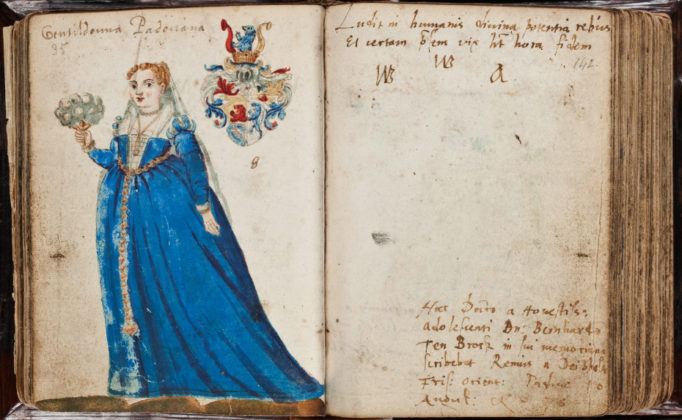 Gentildonna Padouana
95
8
Ludit in humanis diuina potentia rebus
Et certam vix hora fidem
142
W W A
Hæc Docto a Honestiss:
adolescenti Dn: Bernhardo
Ten Broek in sui memoriam
scribebat Remius a
Fris: orient:
August: